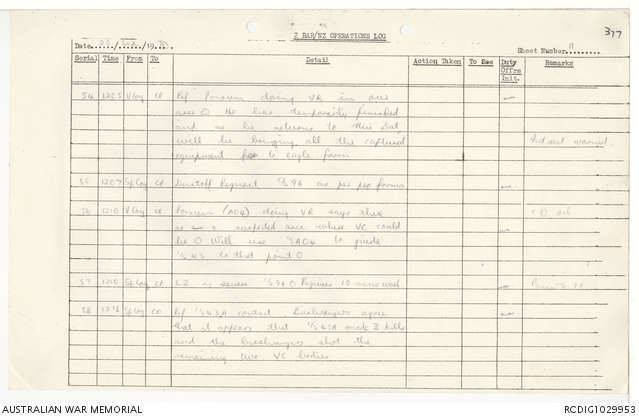 377
2 RAR/NZ OPERATIONS LOG
Date 23/ /1970
Sheet Number 11
Serial Time From To Detail Action Taken To Sec Duty Offrs Init. Remarks
54 1205 V Coy CP Ref Possum doing VR in our
area O He has temporarily finished
and as he returns to this loc,
will be bringing all the captured
equipment to eagle farm
55 1207 Sp Coy CP Dustoff Request 96 as per pro forma
56 1210 V Coy CP Possum (A04) doing VR says there
is a suspected area where VC could
be O Will use A04 to guide
to that point O
57 1210 Sp Coy CP LZ is secure O Requires 10 mins
58 Sp Coy CO Ref 43A contact. Bushrangers agree
that it appears that 43A made 3 kills
and the bushrangers shot the
remaining two VC bodies
AUSTRALIAN WAR MEMORIAL
RCDIG1029953